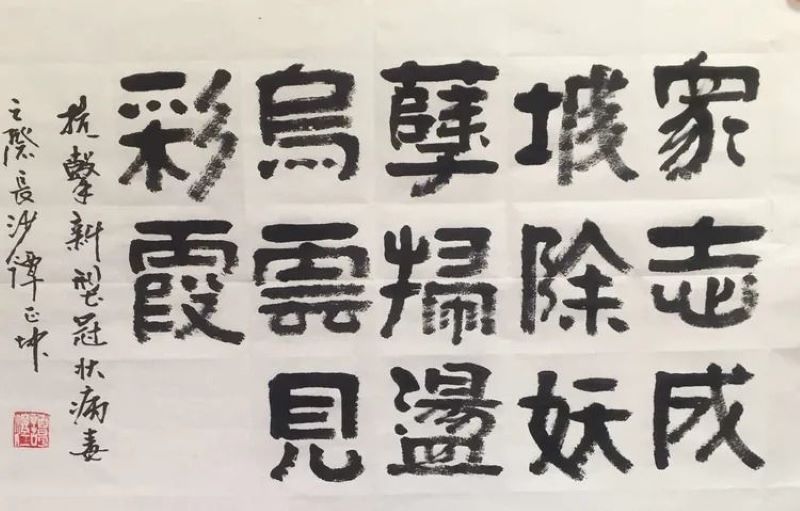 眾志成
城除妖
孽掃盪
烏雲見
彩霞
抗擊新型冠状病毒
之際長沙譚正坤